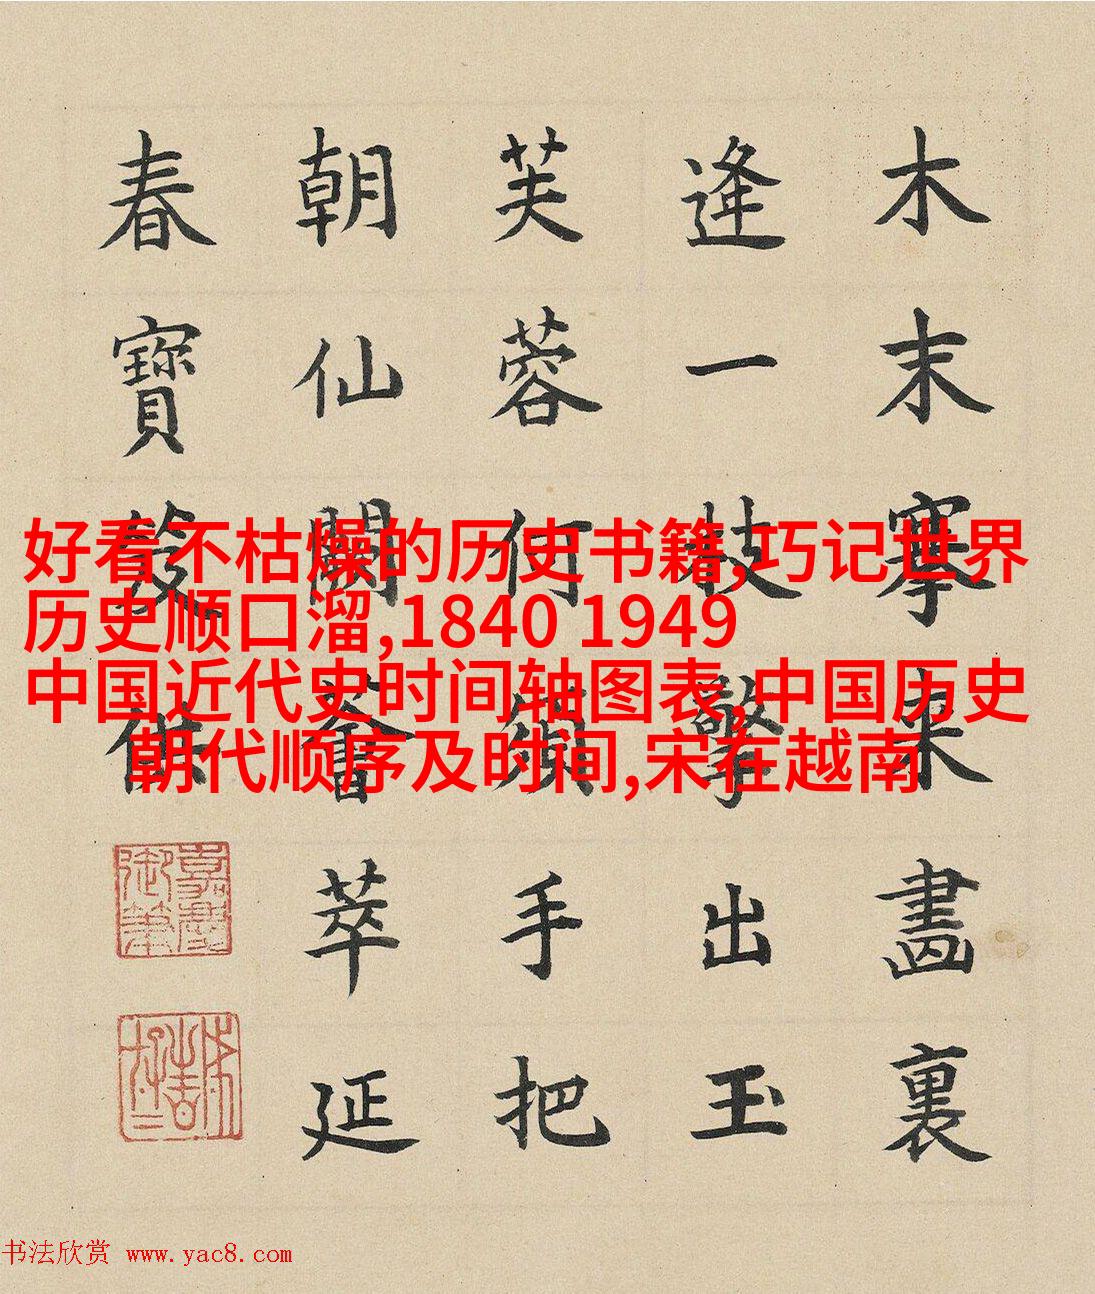 木末搴畫裏
逢一枝擎出玉
芙蓉何須手把
朝仙薈萃延
春寶笈
嘉慶御筆
好看不枯燥的历史书籍,巧记世界
历史顺口溜,1840 1949
中国近代史时间轴图表,中国历史
朝代顺序及时间,宋在越南
书法欣赏 www.yac8.com